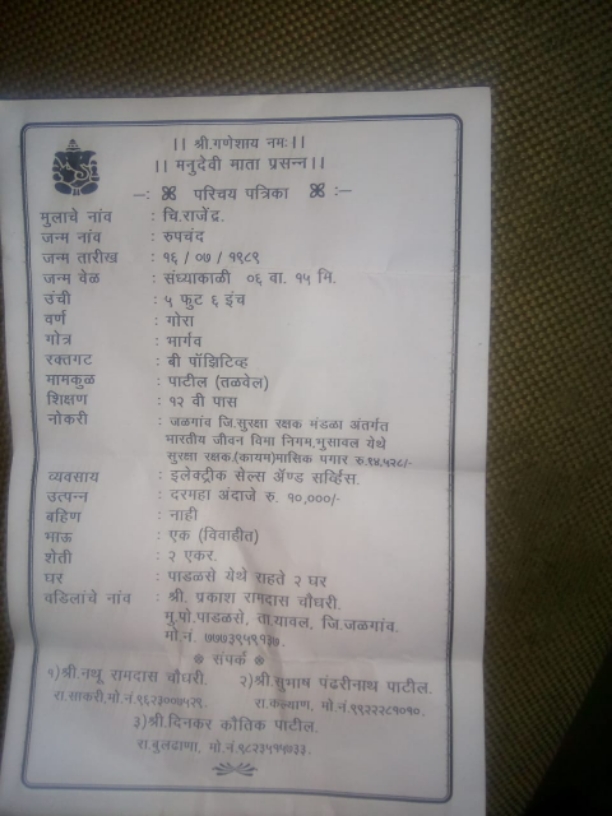 ।। श्री.गणेशाय नमः।।
।। मनुदेवी माता प्रसन्न।।
–: परिचय पत्रिका :–
मुलाचे नांव : चि.राजेंद्र.
जन्म नांव : रुपचंद
जन्म तारीख : १६ / ०७ / १९८९
जन्म वेळ : संध्याकाळी ०६ वा. १५ मि.
उंची : ५ फुट ६ इंच
वर्ण : गोरा
गोत्र : भार्गव
रक्तगट : बी पॉझिटिव्ह
मामकुळ : पाटील (तळवेल)
शिक्षण : १२ वी पास
नोकरी : जळगांव जि.सुरक्षा रक्षक मंडळा अंतर्गत
भारतीय जीवन विमा निगम,भुसावल येथे
सुरक्षा रक्षक,(कायम)मासिक पगार रु.१४,५२८/-
व्यवसाय : इलेक्ट्रीक सेल्स ॲण्ड सर्व्हिस.
उत्पन्न : दरमहा अंदाजे रु. १०,०००/-
बहिण : नाही
भाऊ : एक (विवाहीत)
शेती : २ एकर.
घर : पाडळसे येथे राहते २ घर
वडिलांचे नांव : श्री. प्रकाश रामदास चौधरी.
मु.पो.पाडळसे, ता.यावल, जि.जळगांव.
मो.नं. ७७७३९५९१३७.
संपर्क
१)श्री.नथू रामदास चौधरी. २)श्री.सुभाष पंढरीनाथ पाटील.
रा.साकरी,मो.नं.९६२३००७५२९. रा.कल्याण, मो.नं.९९२२२८१०१०.
३)श्री.दिनकर कौतिक पाटील.
रा.बुलढाणा, मो.नं.९८२३५१५७३३.